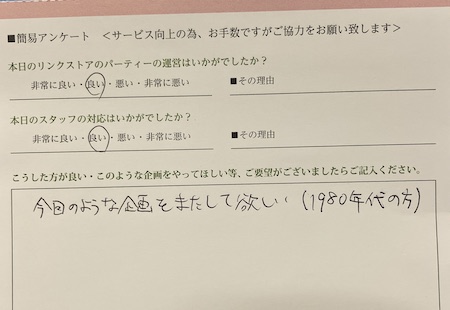 ■簡易アンケート ＜サービス向上の為、お手数ですがご協力をお願い致します＞
本日のリンクストアのパーティーの運営はいかがでしたか？
非常に良い・良い・悪い・非常に悪い ■その理由
本日のスタッフの対応はいかがでしたか？
非常に良い・良い・悪い・非常に悪い ■その理由
こうした方が良い・このような企画をやってほしい等、ご要望がございましたらご記入ください。
今回のような企画をまたして欲しい (1980年代の方)